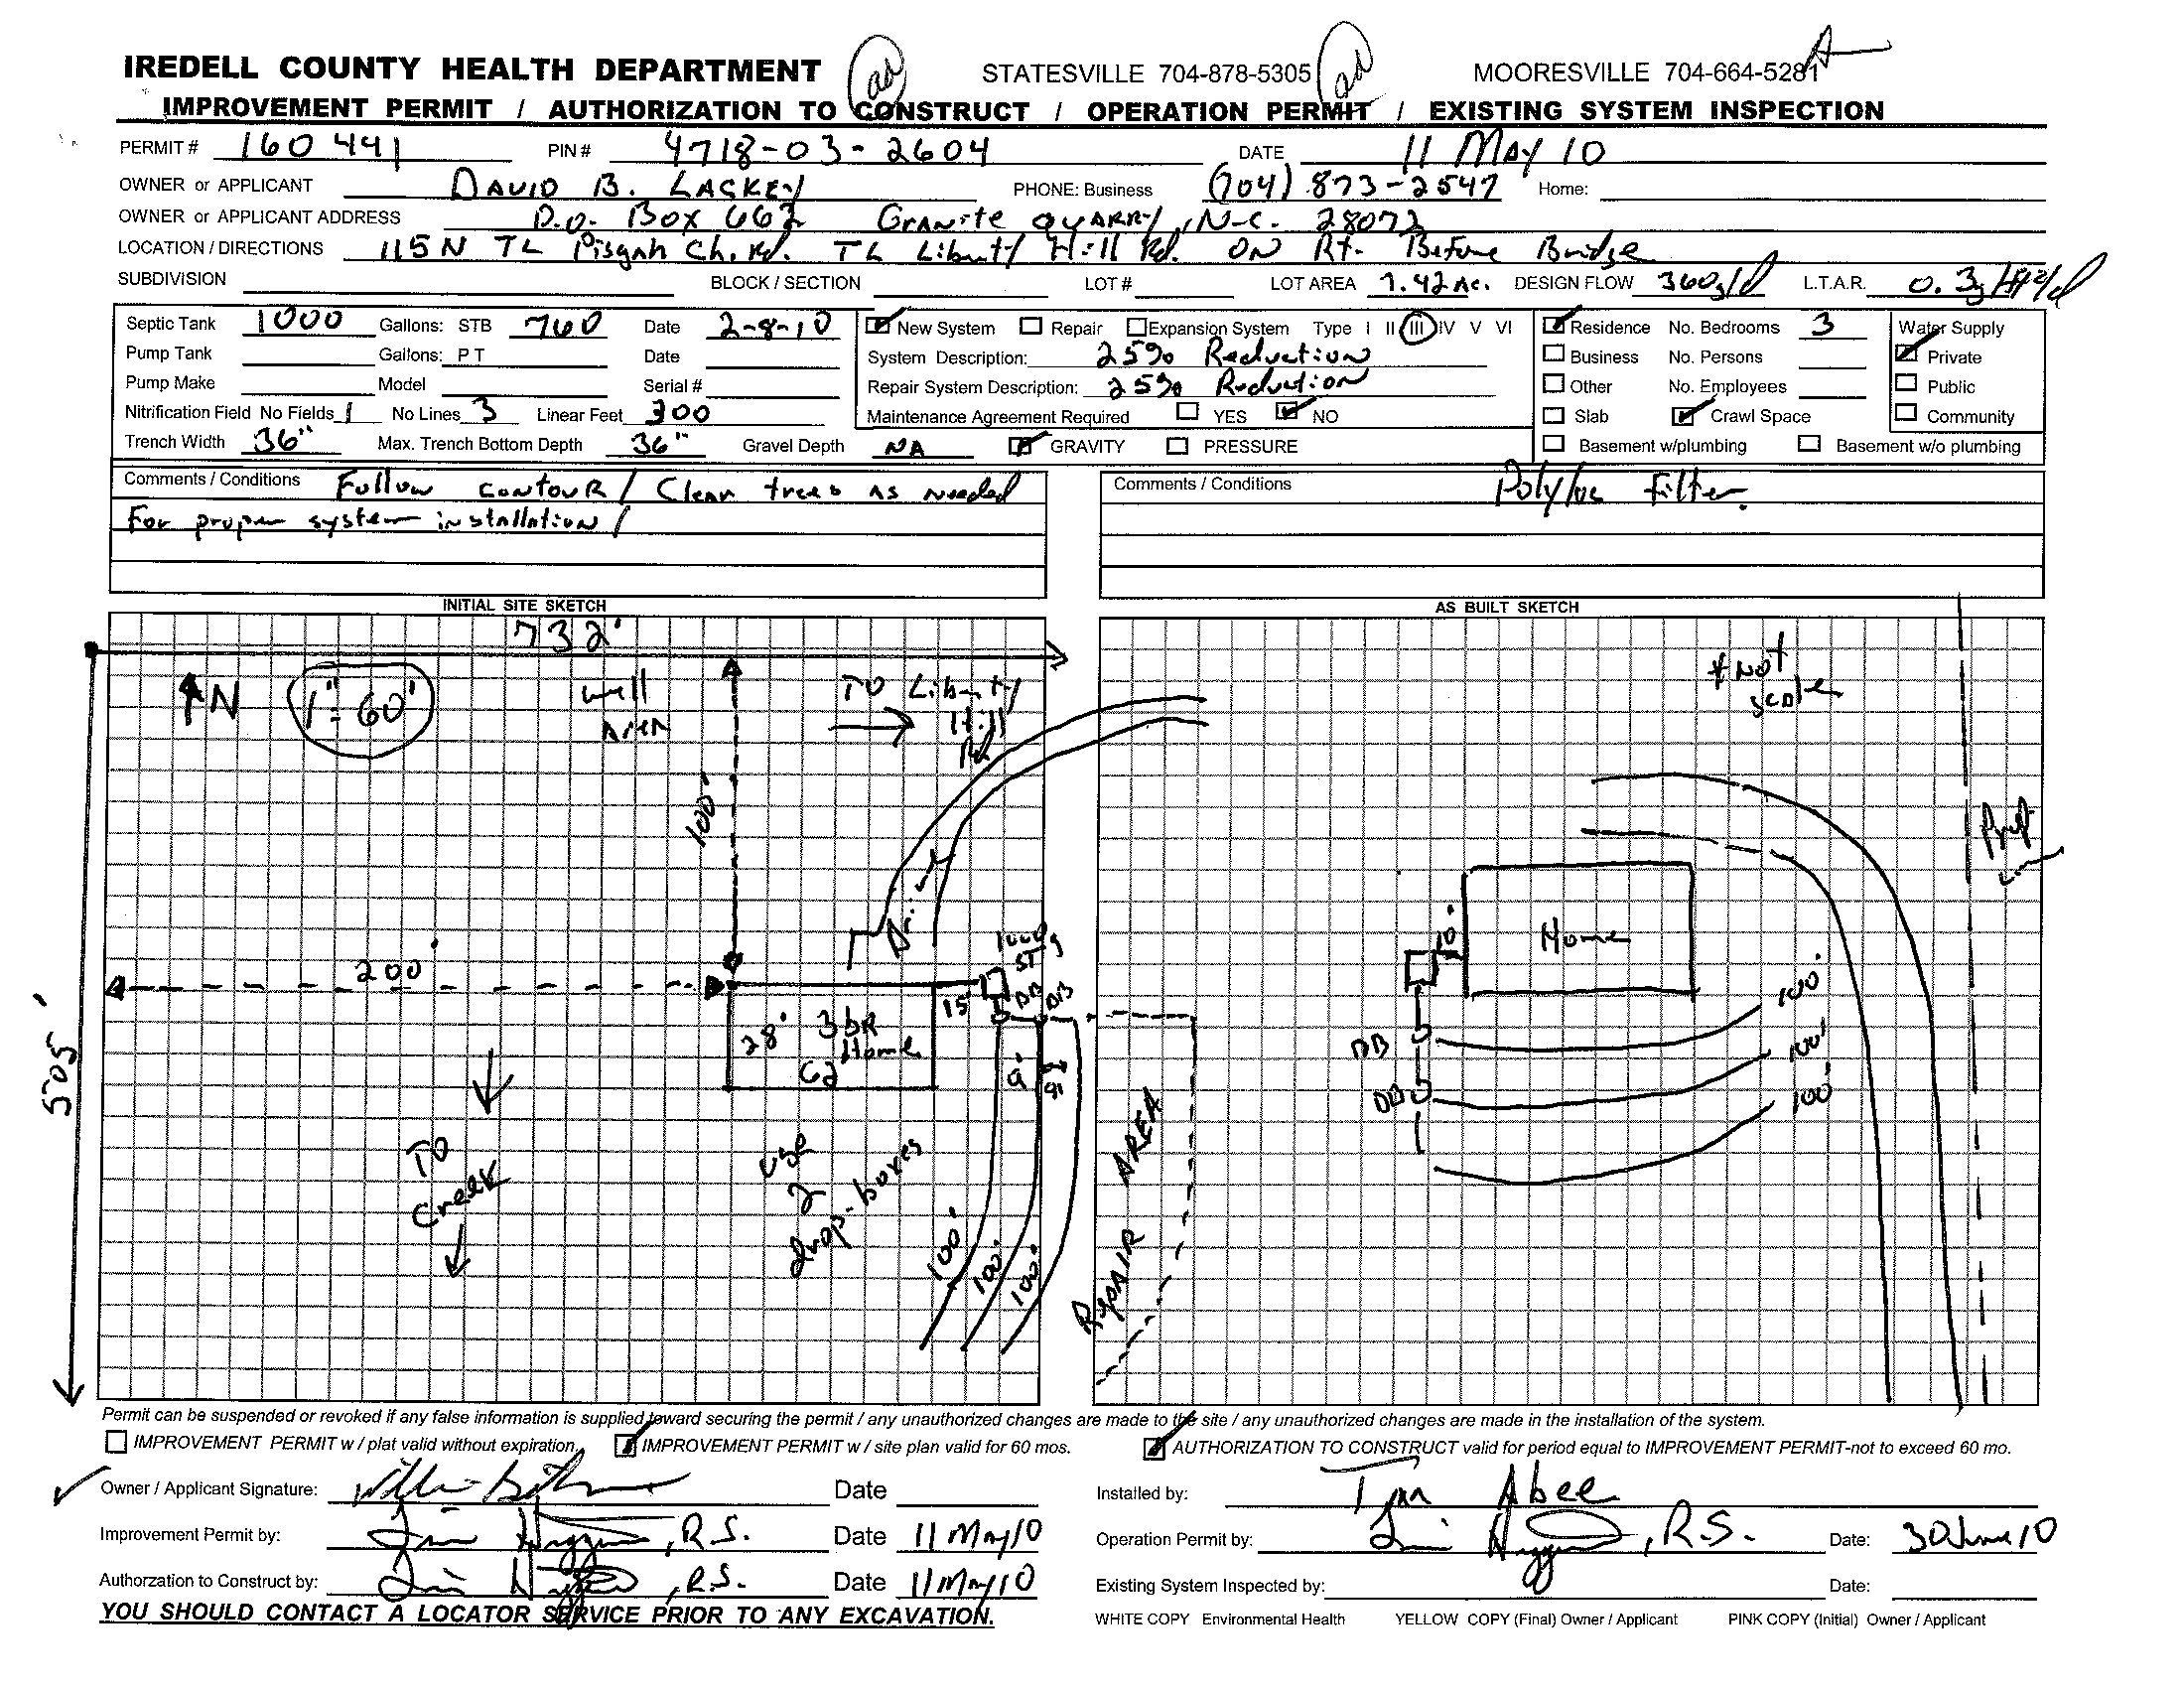 IREDELL COUNTY HEALTH DEPARTMENT STATESVILLE 704-878-5305 MOORESVILLE 704-664-5281
IMPROVEMENT PERMIT / AUTHORIZATION TO CONSTRUCT / OPERATION PERMIT / EXISTING SYSTEM INSPECTION
PERMIT # 160441 PIN # 4718-03-2604 DATE 11 May 10
OWNER or APPLICANT DAVID B. LACKEY PHONE: Business (704) 873-2547 Home:
OWNER or APPLICANT ADDRESS P.O. Box 662 Granite Quarry, N.C. 28072
LOCATION / DIRECTIONS 115 N TL Pisgah Ch. Rd. TL Liberty Hill Rd. ON Rt. Before Bridge
SUBDIVISION BLOCK / SECTION LOT # LOT AREA 7.42 Ac. DESIGN FLOW 360g/d L.T.A.R. 0.3g/ft²/d
Septic Tank 1000 Gallons: STB 760 Date 2-8-10 New System Repair Expansion System Type I II III IV V VI Residence No. Bedrooms 3 Water Supply
Pump Tank Gallons: PT Date System Description: 25% Reduction Business No. Persons Private
Pump Make Model Serial # Repair System Description: 25% Reduction Other No. Employees Public
Nitrification Field No Fields 1 No Lines 3 Linear Feet 300 Maintenance Agreement Required YES NO Slab Crawl Space Community
Trench Width 36" Max. Trench Bottom Depth 36" Gravel Depth NA GRAVITY PRESSURE Basement w/plumbing Basement w/o plumbing
Comments / Conditions Follow contour / Clear trees as needed
For proper system installation /
Comments / Conditions Polylok Filter
INITIAL SITE SKETCH
732'
N
1" = 60'
Well
Area
TO Liberty
Hill
Rd
100'
Drive
200'
505'
1000g
ST
DB DB
15'
28' 3 bR
Home
62'
9' 9'
TO
Creek
use
2
drop-boxes
100'
100'
100'
REPAIR AREA
AS BUILT SKETCH
* Not
scale
Prop
10'
Home
DB
DB
100'
100'
100'
Permit can be suspended or revoked if any false information is supplied toward securing the permit / any unauthorized changes are made to the site / any unauthorized changes are made in the installation of the system.
IMPROVEMENT PERMIT w / plat valid without expiration. IMPROVEMENT PERMIT w / site plan valid for 60 mos. AUTHORIZATION TO CONSTRUCT valid for period equal to IMPROVEMENT PERMIT-not to exceed 60 mo.
Owner / Applicant Signature: Date
Installed by: Tim Abee
Improvement Permit by: , R.S. Date 11 May 10
Operation Permit by: , R.S. Date: 30 June 10
Authorzation to Construct by: , R.S. Date 11 May 10
Existing System Inspected by: Date:
YOU SHOULD CONTACT A LOCATOR SERVICE PRIOR TO ANY EXCAVATION.
WHITE COPY Environmental Health YELLOW COPY (Final) Owner / Applicant PINK COPY (Initial) Owner / Applicant